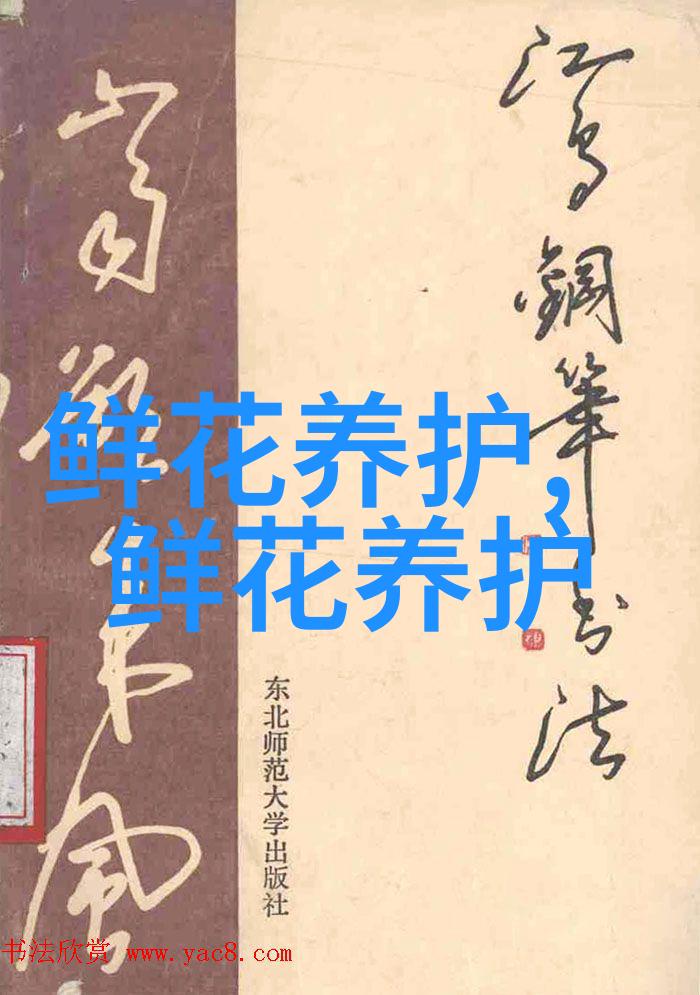 江鸟鋼筆书法
鲜花养护,
鲜花养护
东北师范大学出版社
书法欣赏 www.yac8.com